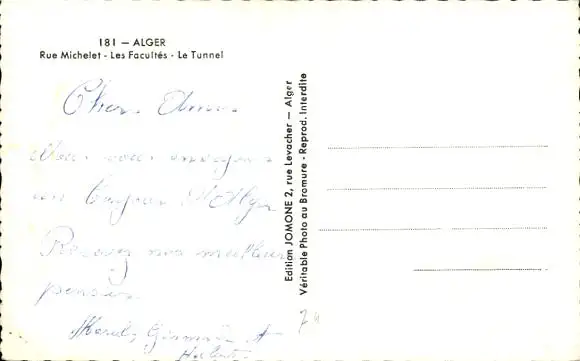 181 — ALGER
Rue Michelet - Les Facultés - Le Tunnel
Chers Amis
vous envoyons
un bonjour d'Alger
Recevez nos meilleur
pensées
Edition JOMONE 2, rue Levacher — Alger
Véritable Photo au Bromure - Reprod. Interdite